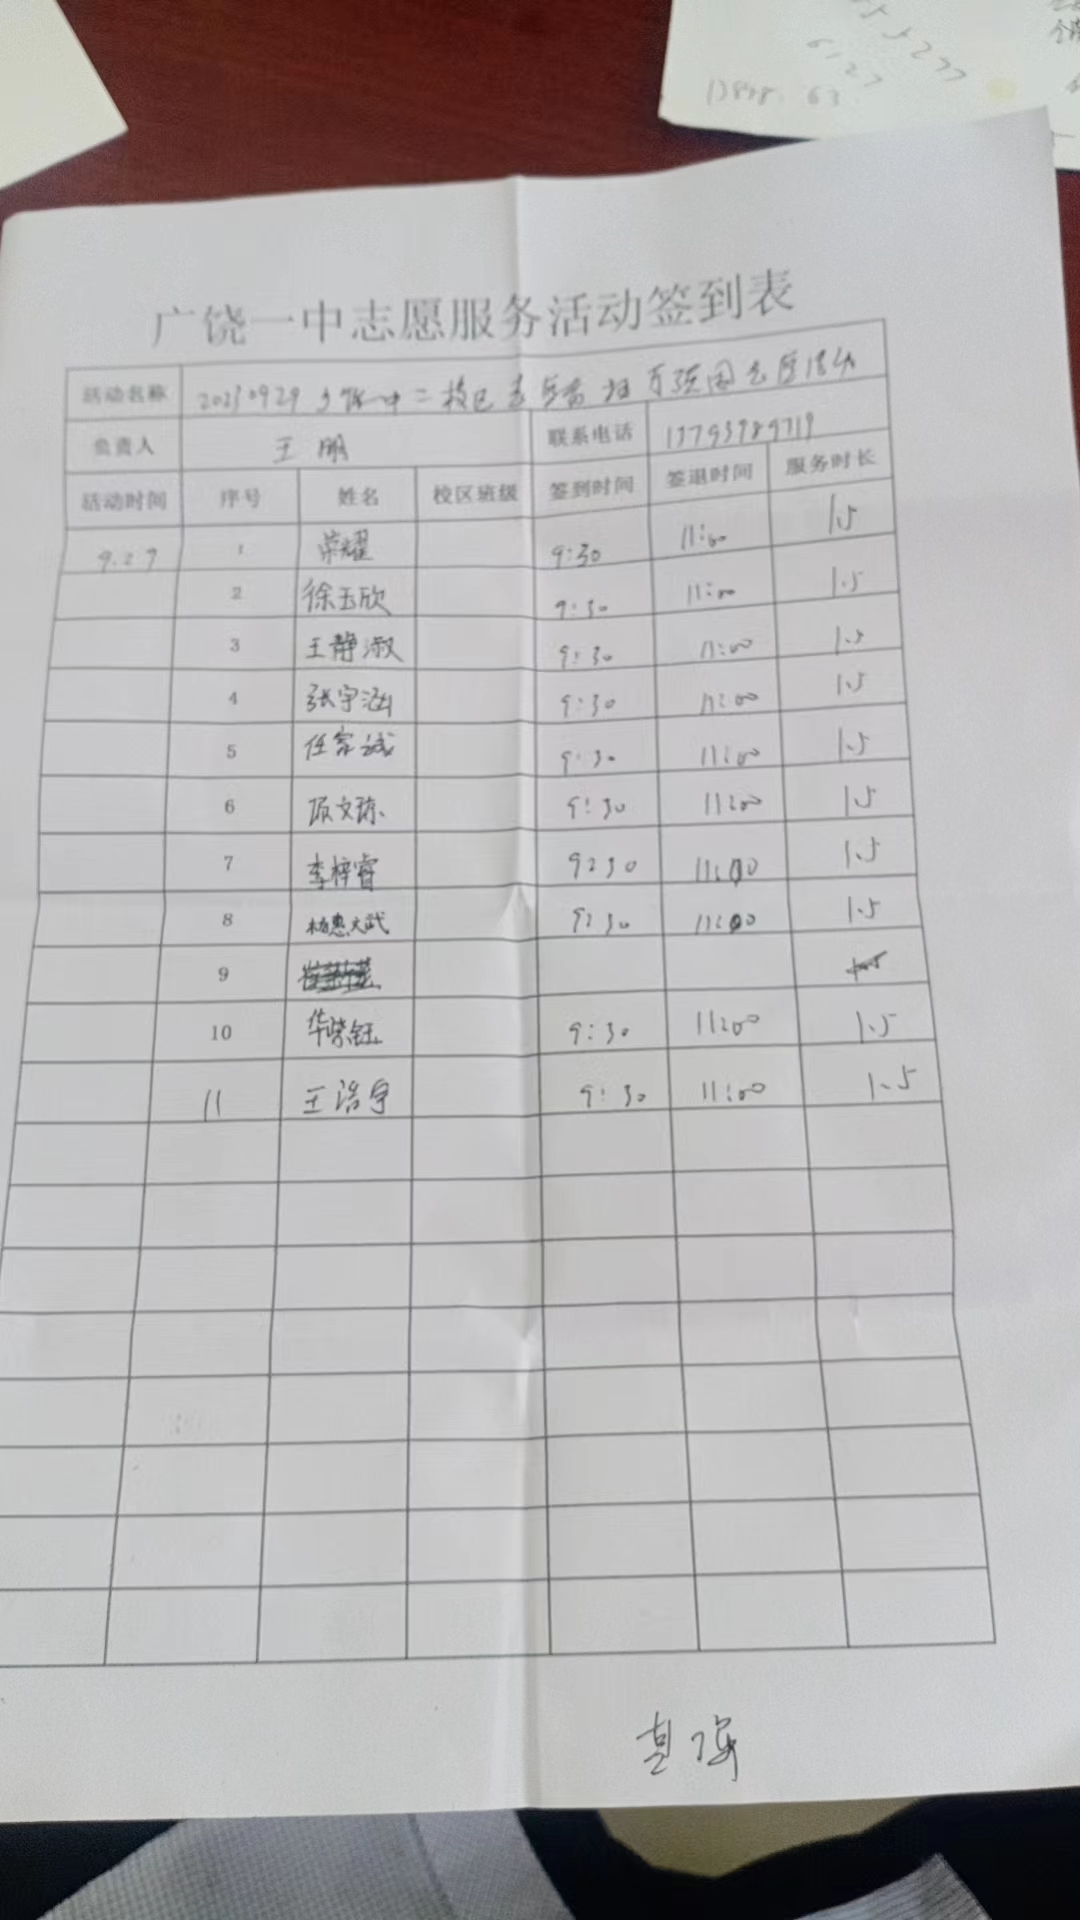 广饶一中志愿服务活动签到表
活动名称 20230929 广饶一中二校区志愿者
负责人 王朋 联系电话
活动时间 序号 姓名 校区班级 签到时间 签退时间 服务时长
9.29 1 荣耀 9:30 11:00 1.5
2 徐玉欣 9:30 11:00 1.5
3 王静淑 9:30 11:00 1.5
4 张宇涵 9:30 11:00 1.5
5 任家诚 9:30 11:00 1.5
6 文 9:30 11:00 1.5
7 李梓睿 9:30 11:00 1.5
8 9:30 11:00 1.5
9
10 9:30 11:00 1.5
11 王浩宇 9:30 11:00 1.5